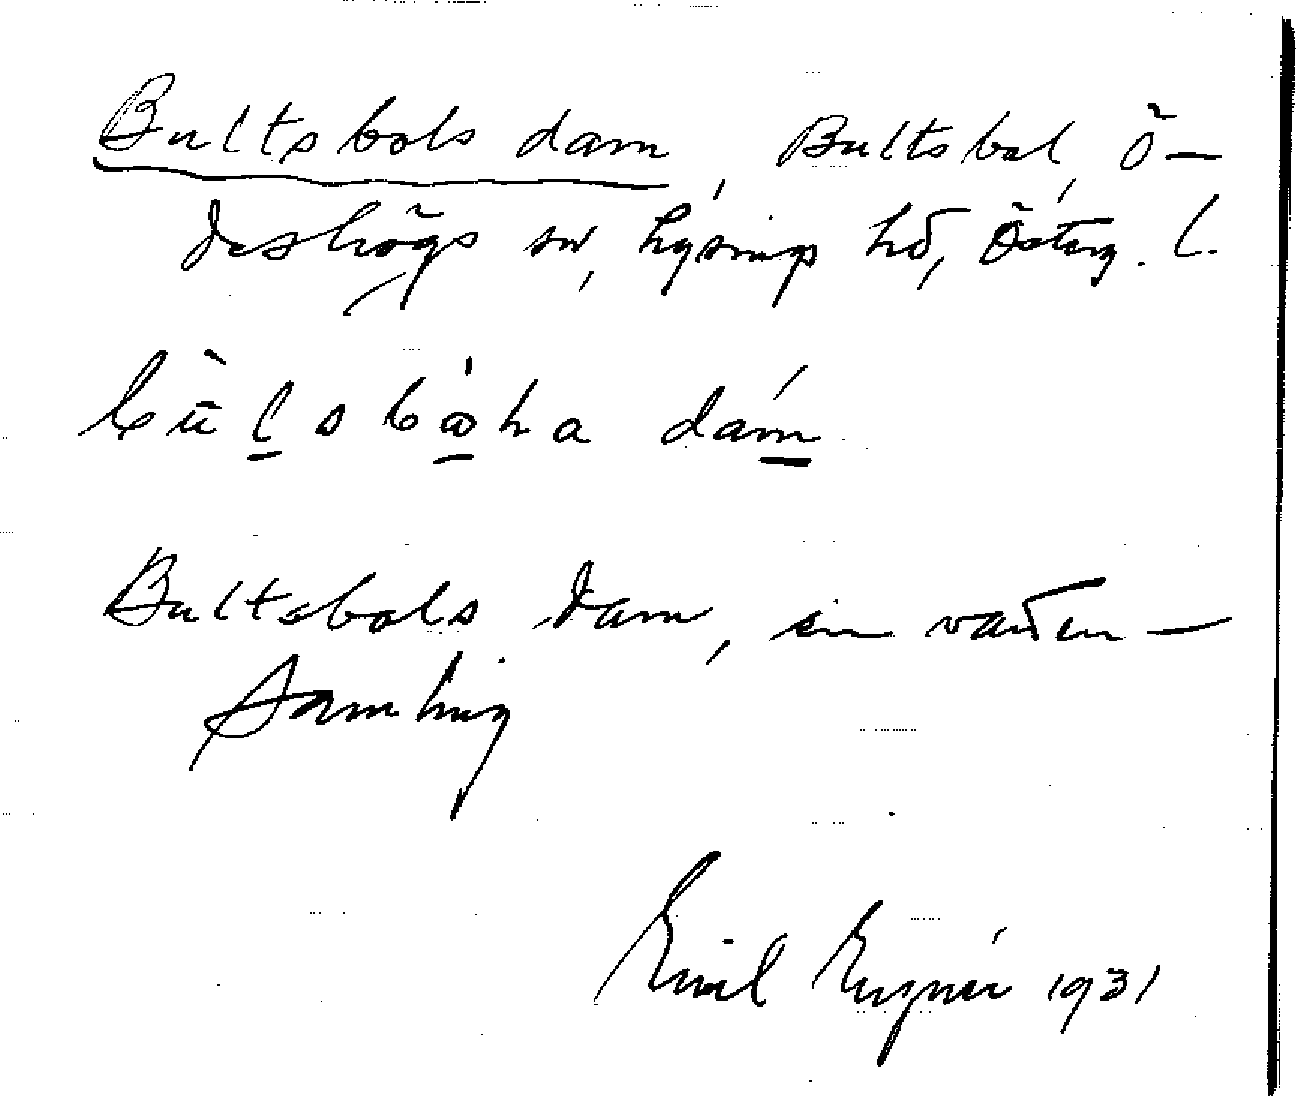 Bultsbols dam, Bultsbol, Ö-
deshögs sn, Lysings hd, Österg. l.
dam
Bultsbols dam, en vatten-
samling
Emil 1931